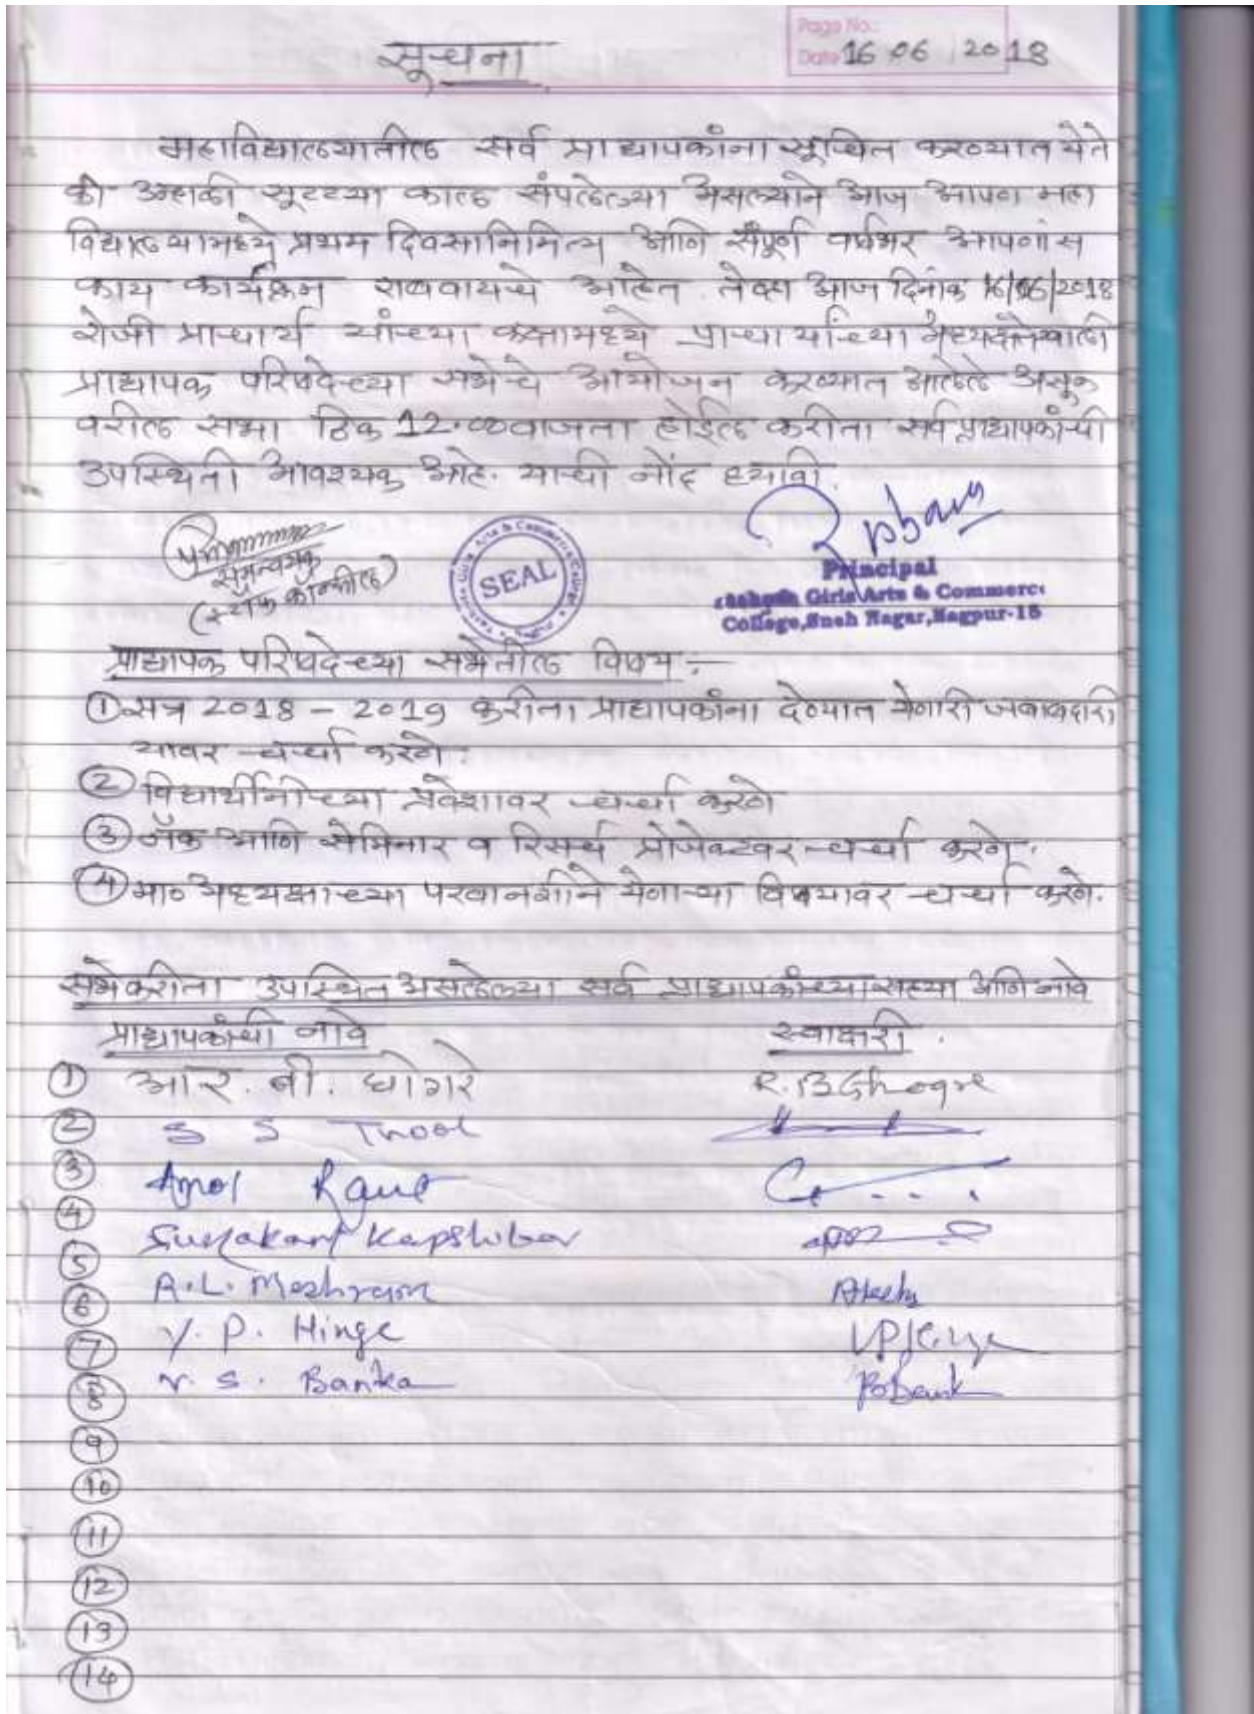 Page No.:
Date 16 06 2018
सूचना
महाविद्यालयातील सर्व प्राध्यापकांना सूचित करण्यात येते
की उन्हाळी सूट्ट्या काल संपलेल्या असल्याने आज आपण महा
विद्यालयामध्ये प्रथम दिवसानिमित्य आणि संपूर्ण वर्षभर आपणांस
काय कार्यक्रम राबवायचे आहेत. तेव्हा आज दिनांक 16/06/2018
रोजी प्राचार्य यांच्या कक्षामध्ये प्राचार्यांच्या अध्यक्षतेखाली
प्राध्यापक परिषदेच्या सभेचे आयोजन करण्यात आलेले असून
वरील सभा ठिक 12.00 वाजता होईल करीता सर्व प्राध्यापकांची
उपस्थिती आवश्यक आहे. याची नोंद घ्यावी.
समन्वयक
(स्टॉफ कॉन्सील)
SEAL
Principal
Girls Arts & Commerce
College, Sneh Nagar, Nagpur-15
प्राध्यापक परिषदेच्या सभेतील विषय :-
① सत्र 2018 - 2019 करीता प्राध्यापकांना देण्यात येणारी जबाबदारी
यावर चर्चा करणे.
② विद्यार्थीनींच्या प्रवेशावर चर्चा करणे
③ नॅक आणि सेमिनार व रिसर्च प्रोजेक्टवर चर्चा करणे.
④ मा० अध्यक्षाच्या परवानगीने येणाऱ्या विषयावर चर्चा करणे.
सभेकरीता उपस्थित असलेल्या सर्व प्राध्यापकांच्या सह्या आणि नावे
प्राध्यापकांची नावे स्वाक्षरी.
① आर. बी. घोगरे R.B Ghogre
② S S Thool
③ Amol Raut
④ Suryakant Kapshikar
⑤ R.L. Meshram
⑥ V. P. Hinge
⑦ V. S. Banka
⑧
⑨
⑩
⑪
⑫
⑬
⑭